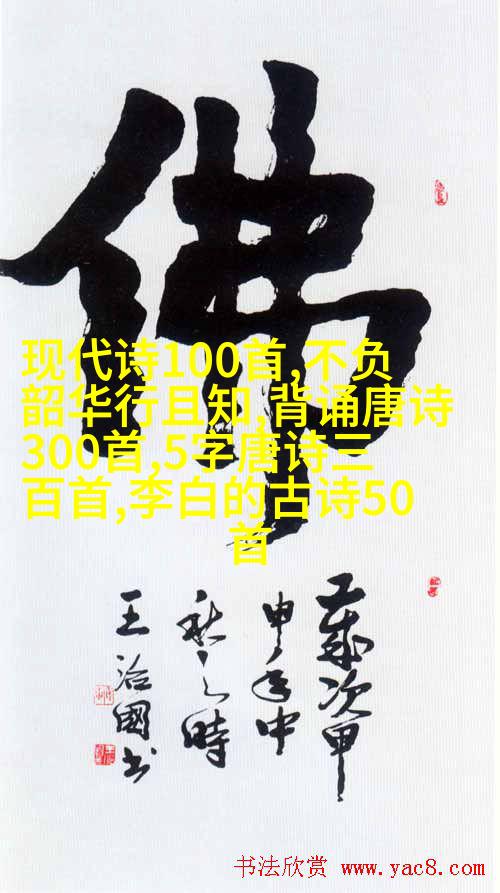 佛
现代诗100首,不负
韶华行且知,背诵唐诗
300首,5字唐诗三
百首,李白的古诗50
首
歲次甲
申年中
秋之時
王治國书
书法欣赏 www.yac8.com